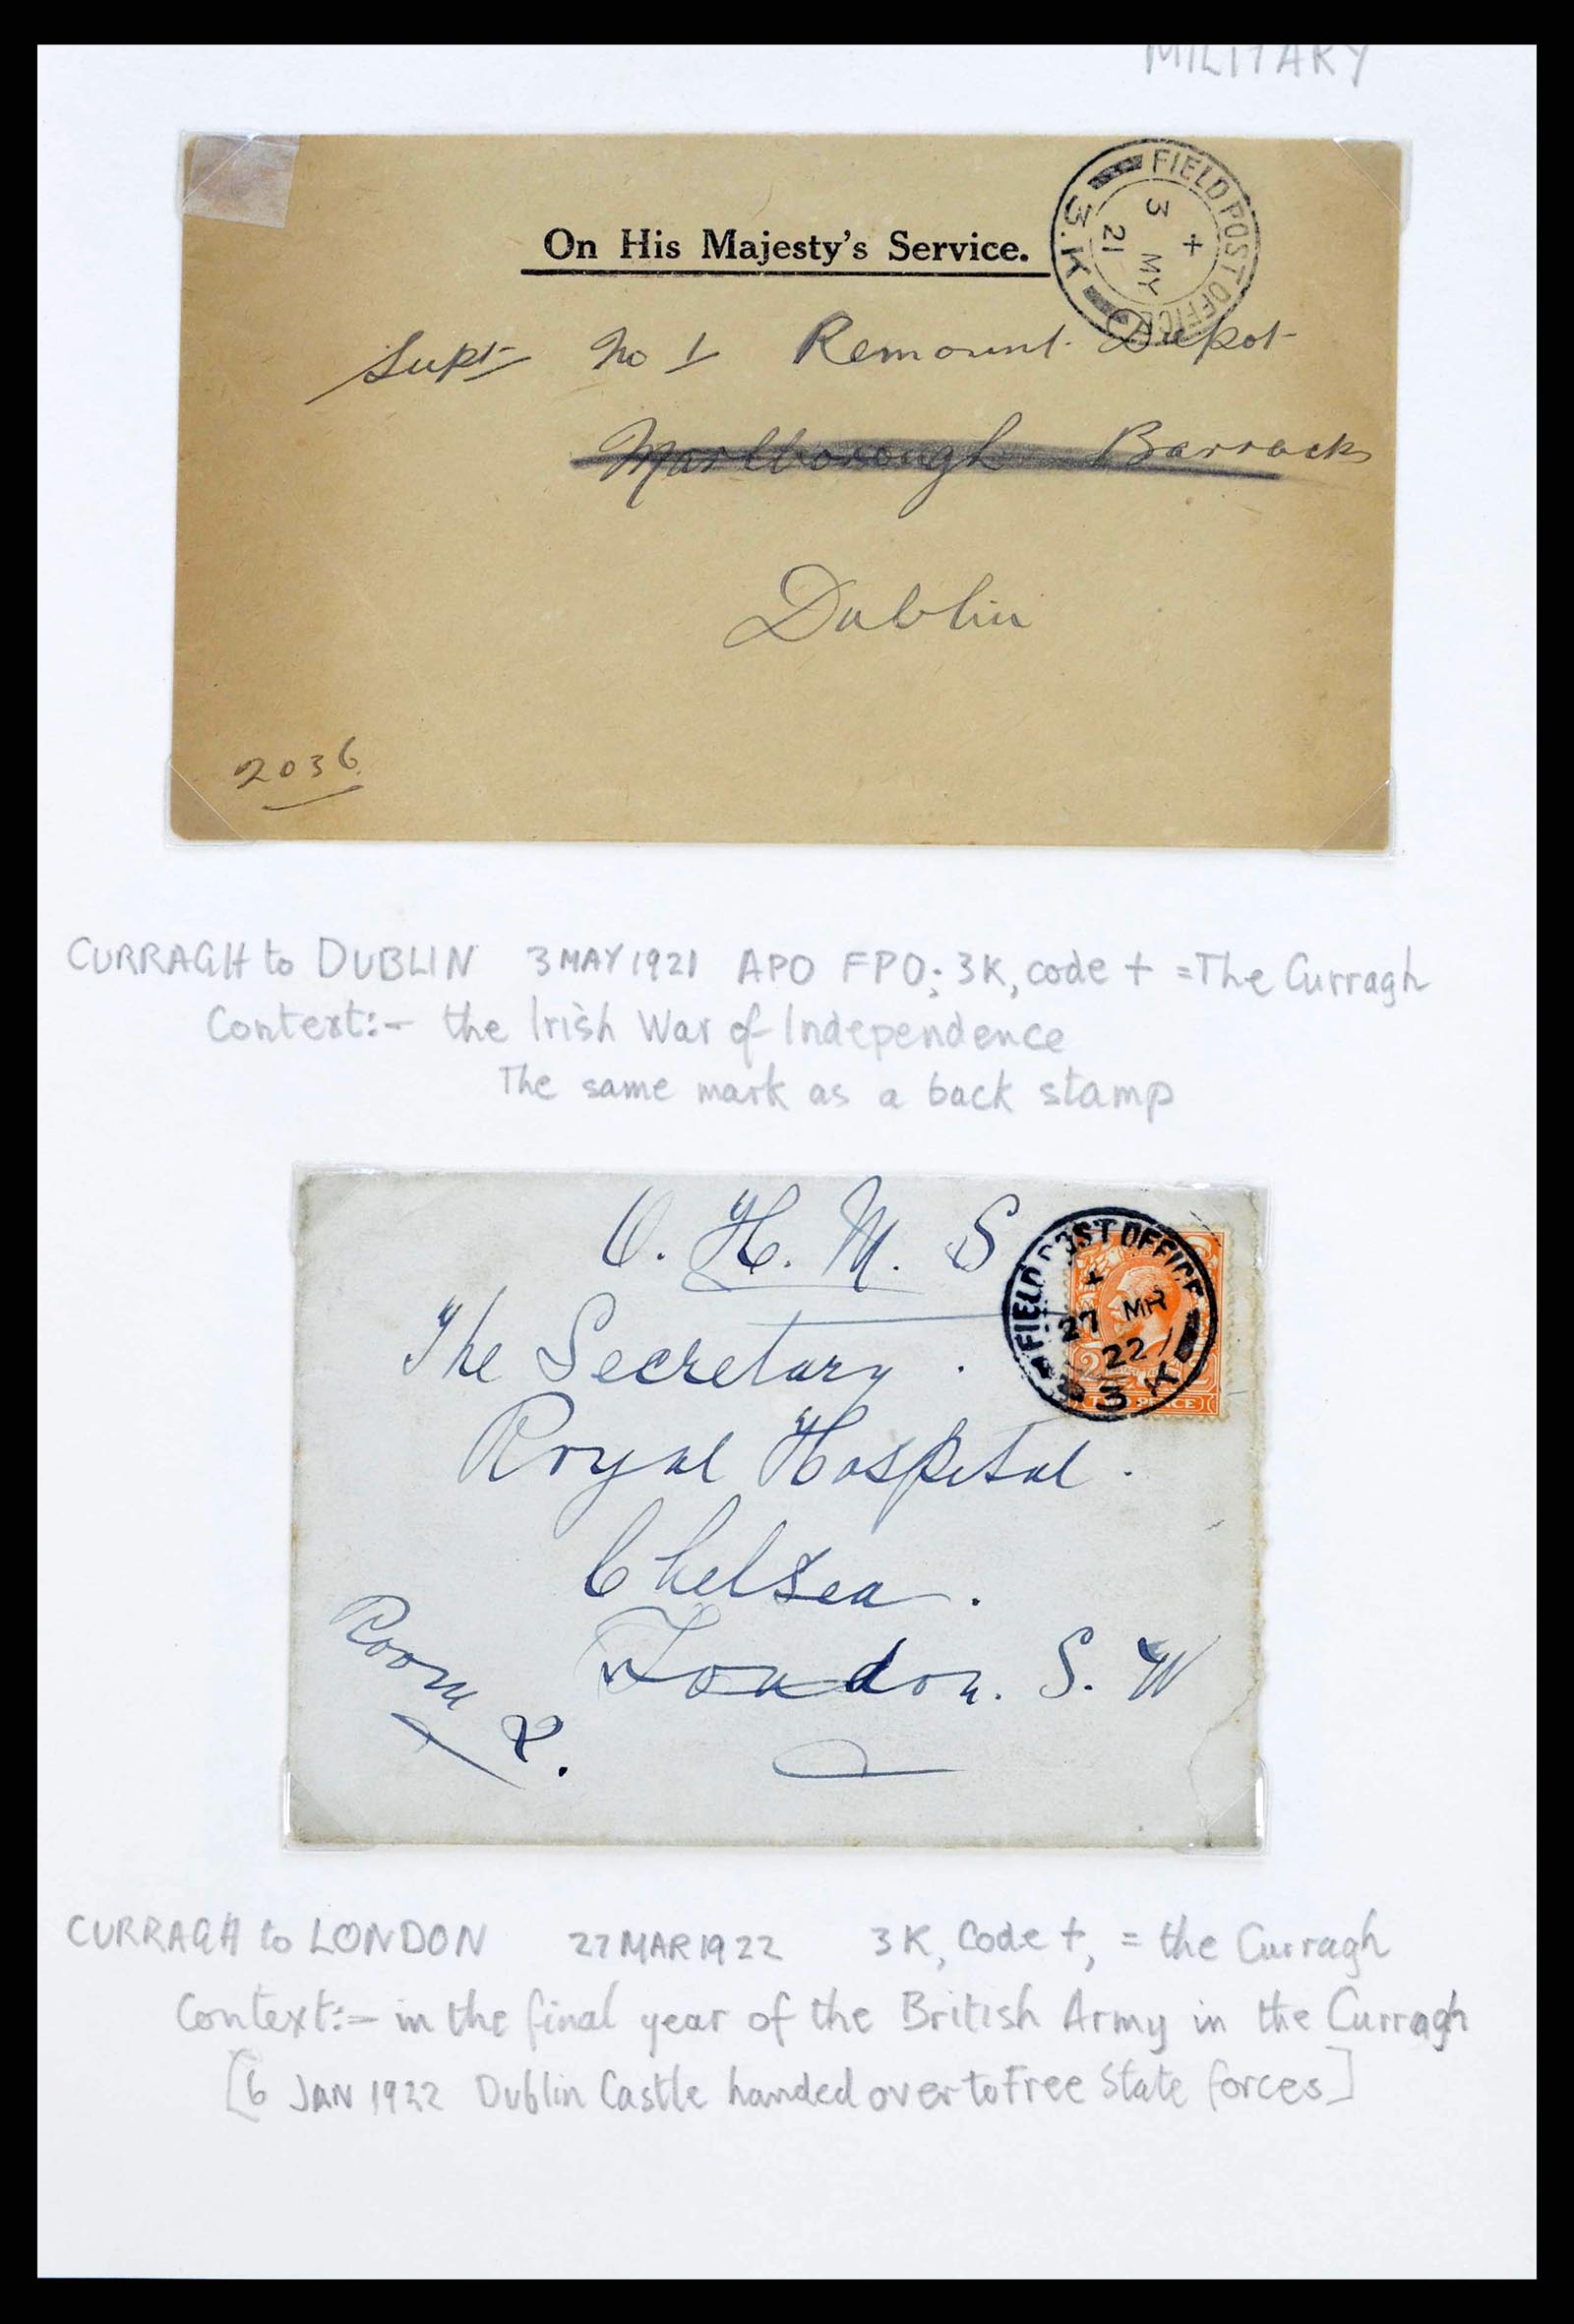 MILITARY
FIELD POST OFFICE
+
3 MY
21
3.K
On His Majesty's Service.
Supt No 1 Remount Depot
Marlborough Barracks
Dublin
2036
CURRAGH to DUBLIN 3 MAY 1921 APO FPO; 3K, code + = The Curragh
Context:- the Irish War of Independence
The same mark as a back stamp
O. H. M. S
FIELD POST OFFICE
+
27 MR
22
3 K
TWO PENCE
The Secretary.
Royal Hospital.
Chelsea.
London. S. W
Room 2.
CURRAGH to LONDON 27 MAR 1922 3K, Code +, = the Curragh
Context:- in the final year of the British Army in the Curragh
[6 JAN 1922 Dublin Castle handed over to Free State forces]